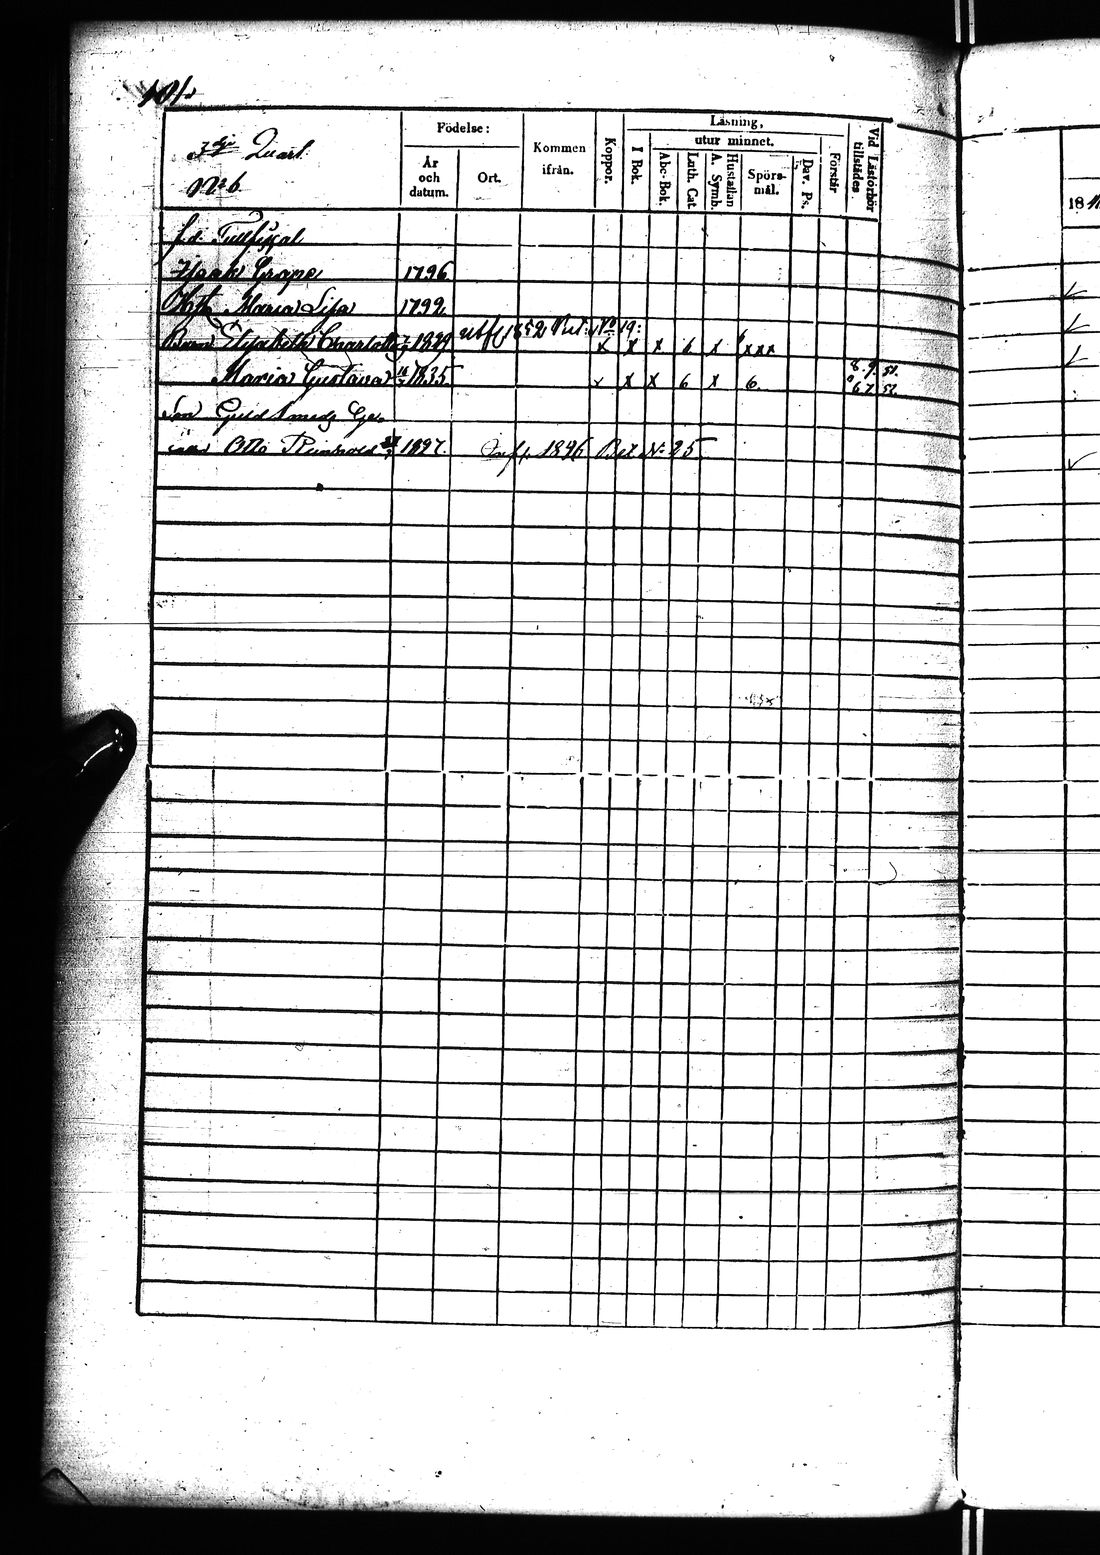 101
3dje Quart:
No 6
Födelse:
År och datum.
Ort.
Kommen ifrån.
Koppor.
Läsning,
I Bok.
utur minnet.
Abc-Bok.
Luth. Cat.
Hustaflan A. Symb.
Spörsmål.
Dav. Ps.
Förstår
Vid Läsförhör tillstädes.
18
f.d. Tullfiscal
Isaak Grape 1796
Hst. Maria Lisa 1792
utfl. 1852 Bet: No 19:
Barn Elisabeth Charlotta 1829 x x x 6 x xxx
Maria Gustava 1835 x x x 6 x 6.
Son Guldsmeds Ge-
sällen Otto Reinhold 1827. Infl. 1846 Bet No 25